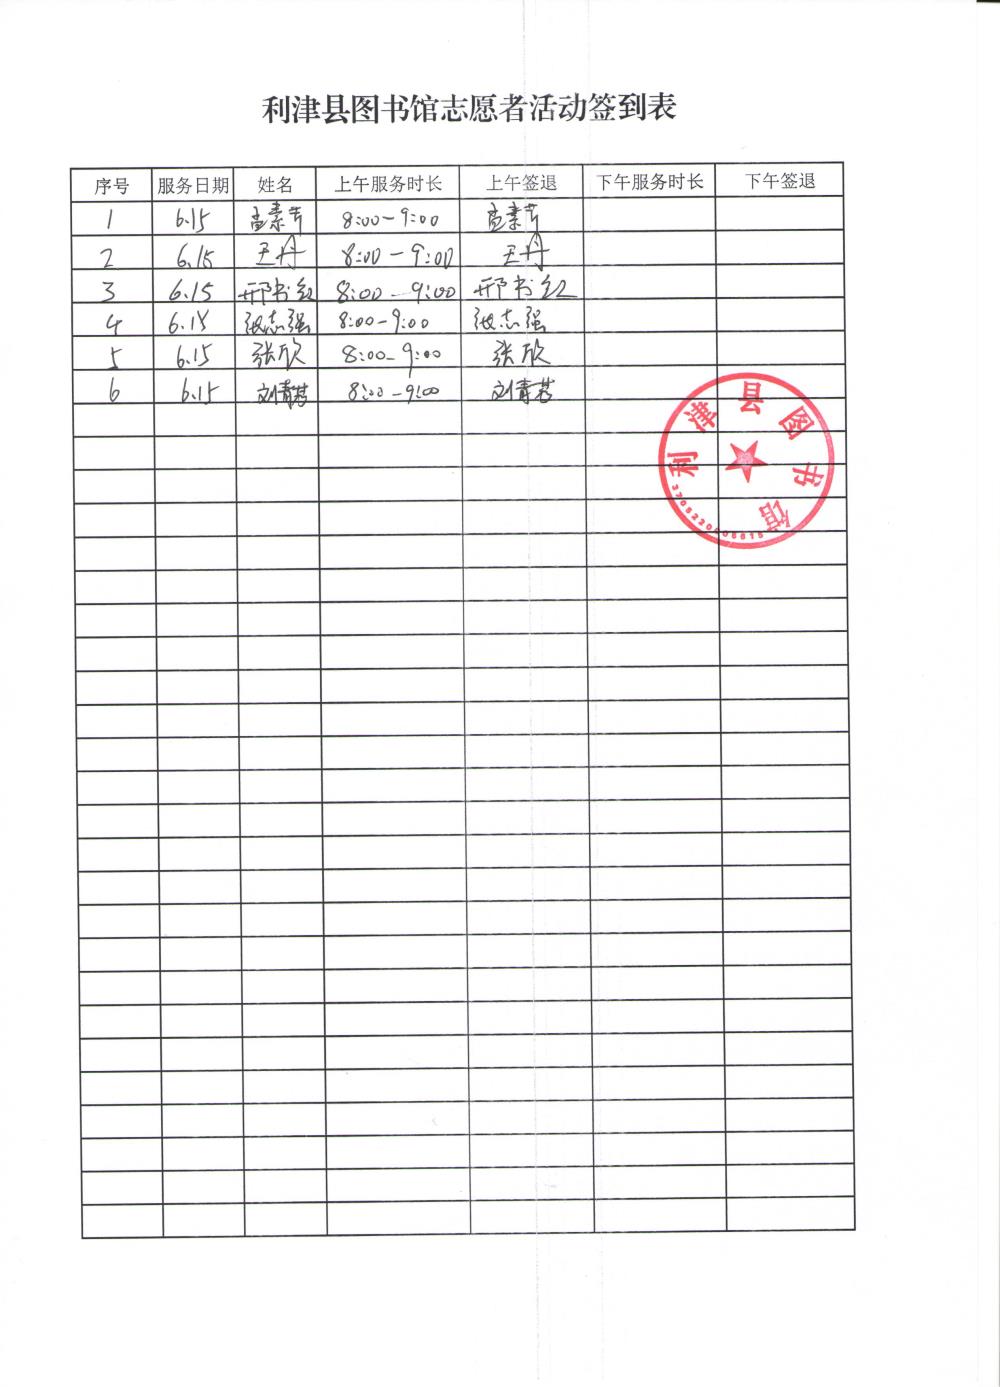 利津县图书馆志愿者活动签到表
序号 服务日期 姓名 上午服务时长 上午签退 下午服务时长 下午签退
1 6.15 8:00-9:00
2 6.15 王丹 8:00-9:00 王丹
3 6.15 邢书红 8:00-9:00 邢书红
4 6.15 张志强 8:00-9:00 张志强
5 6.15 张欣 8:00-9:00 张欣
6 6.15 刘青芳 8:00-9:00 刘青芳
利津县图书馆